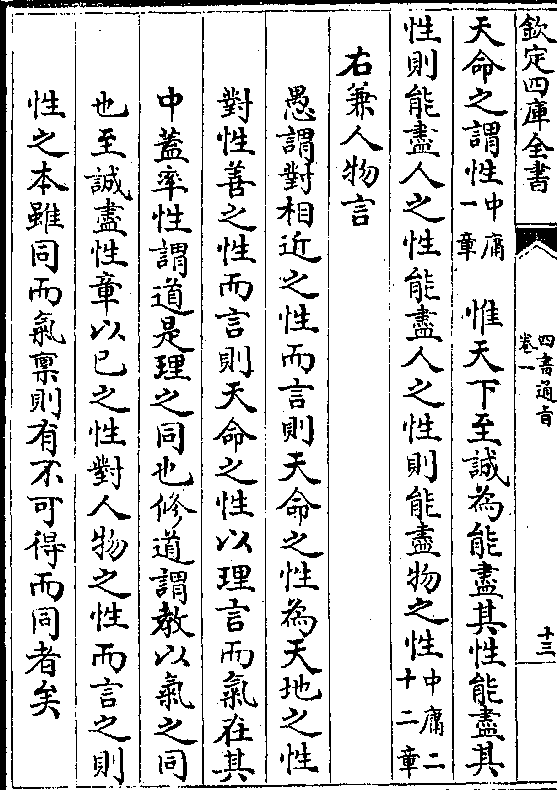 欽定四庫全書
四書通旨
卷一
十三
天命之謂性中庸一章　惟天下至誠為能盡其性能盡其
性則能盡人之性能盡人之性則能盡物之性中庸二十二章
右兼人物言
愚謂對相近之性而言則天命之性為天地之性
對性善之性而言則天命之性以理言而氣在其
中蓋率性謂道是理之同也修道謂教以氣之同
也至誠盡性章以已之性對人物之性而言之則
性之本雖同而氣禀則有不可得而同者矣